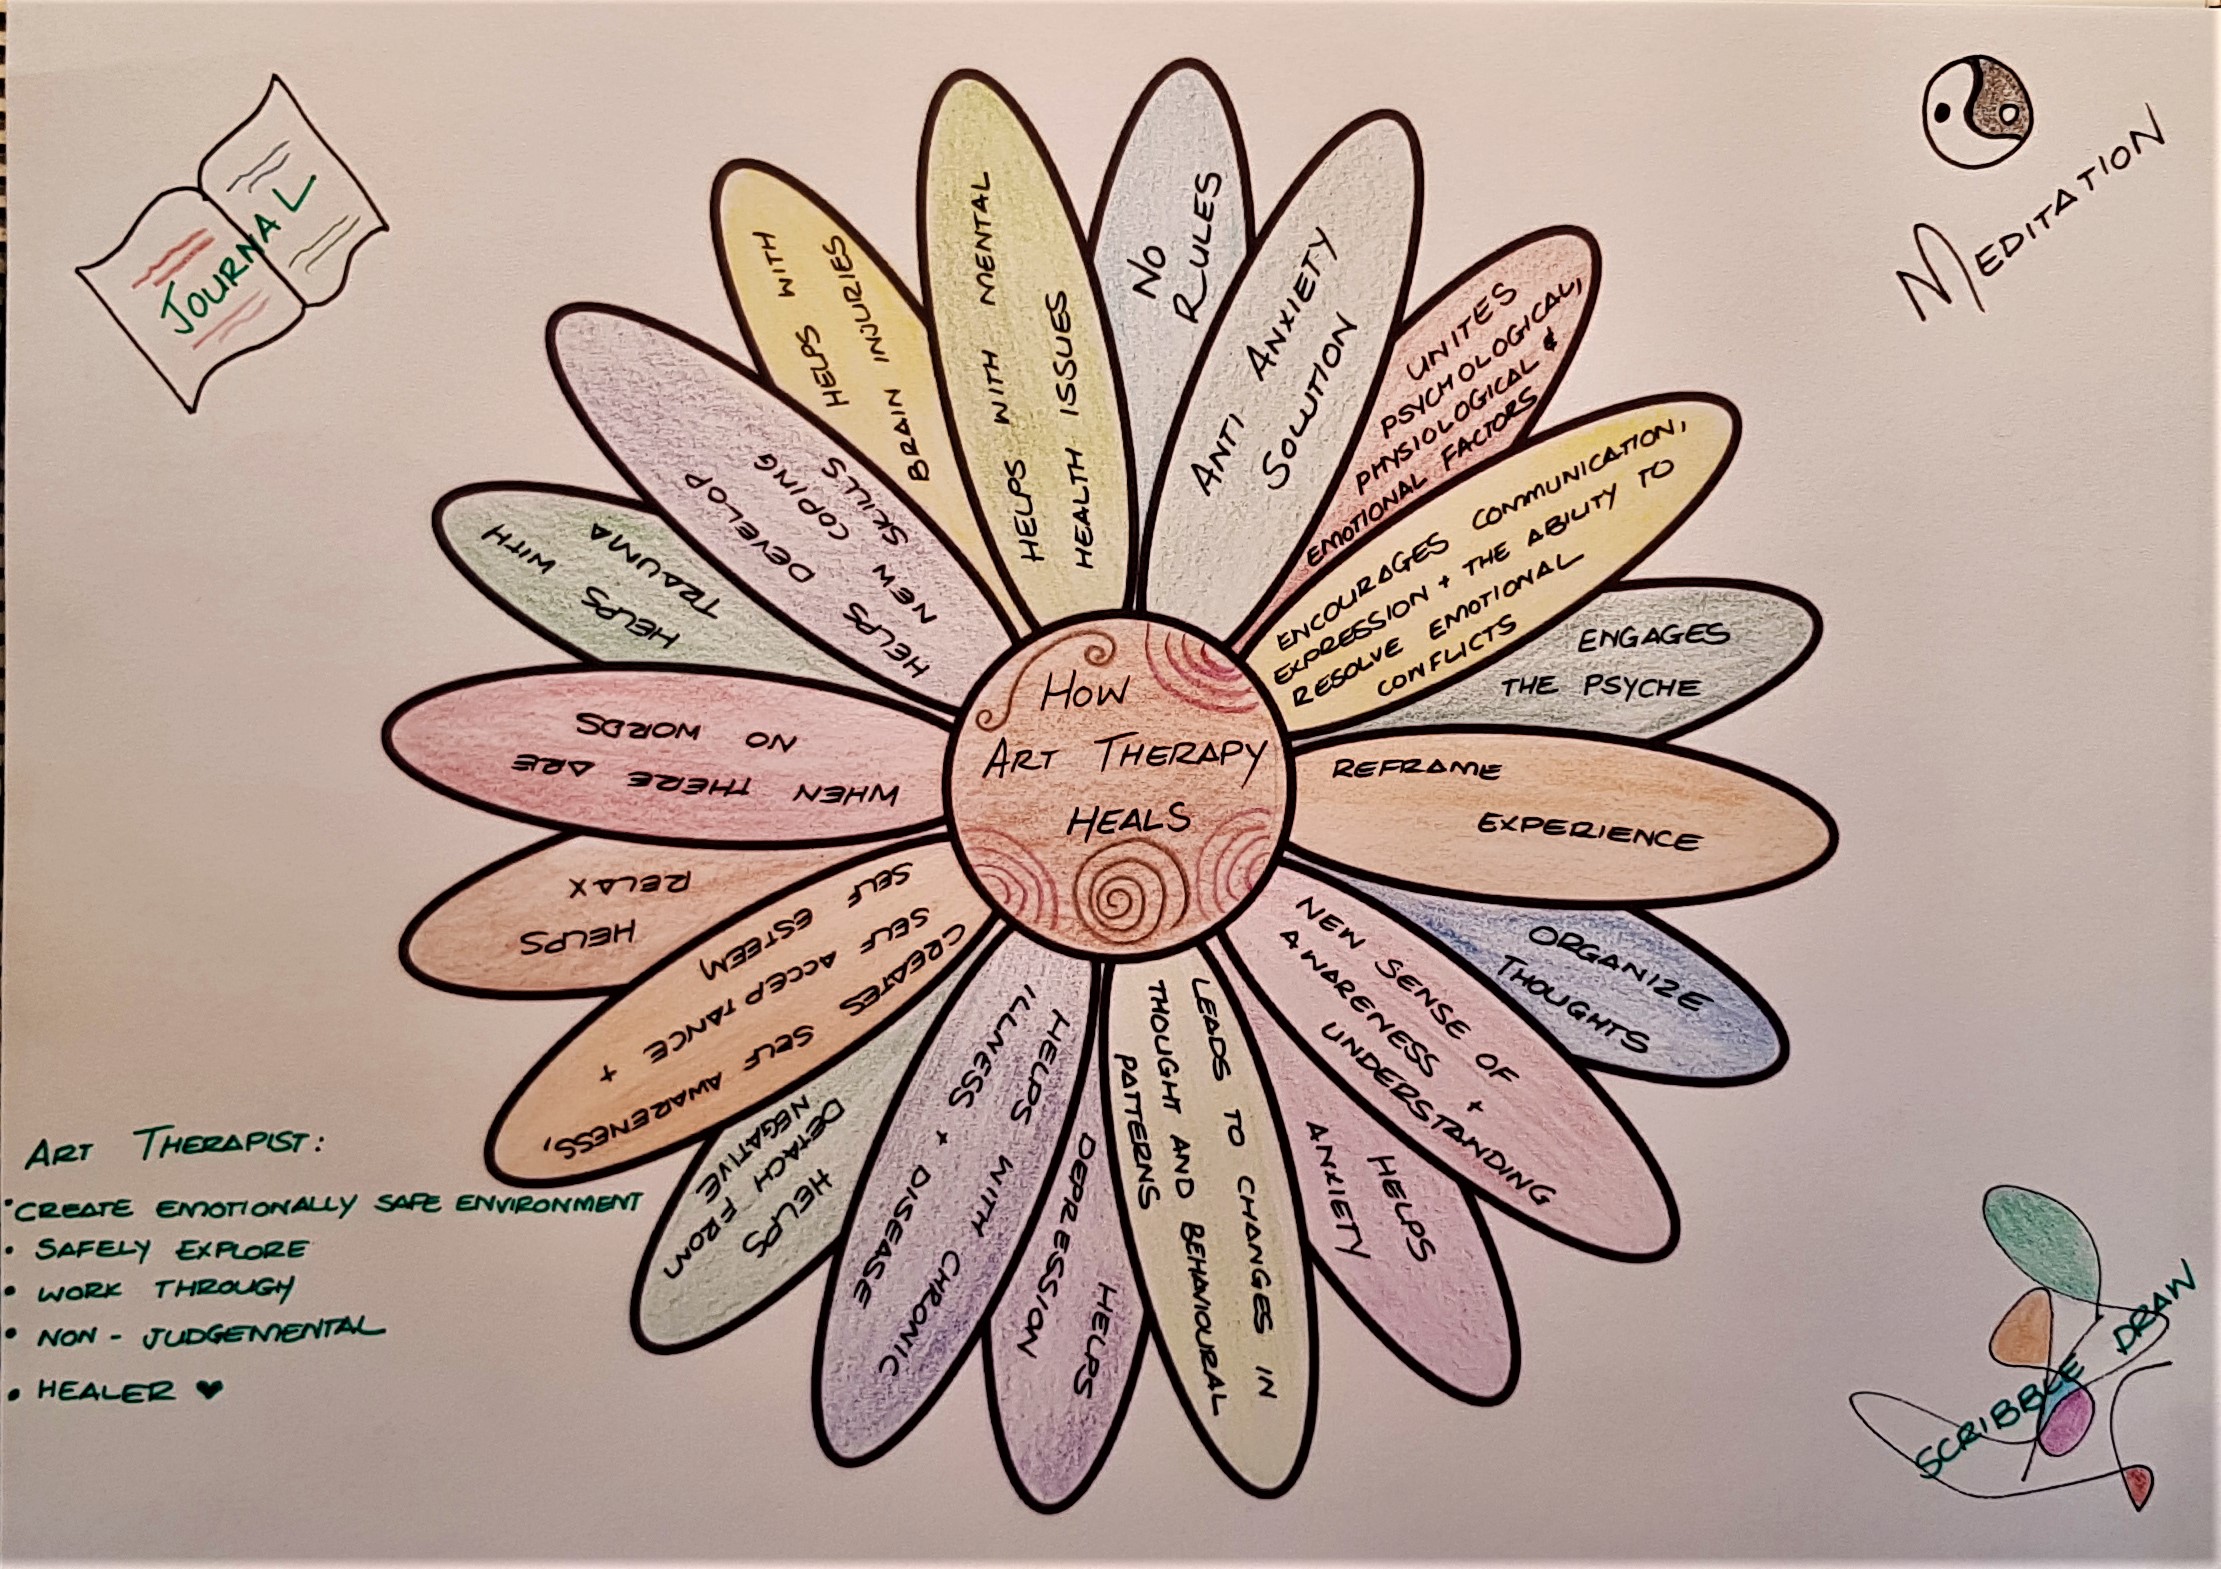 JOURNAL
MEDITATION
HOW
ART THERAPY
HEALS
HELPS WITH MENTAL
HEALTH ISSUES
NO
RULES
ANTI ANXIETY
SOLUTION
UNITES
PSYCHOLOGICAL,
PHYSIOLOGICAL &
EMOTIONAL FACTORS
ENCOURAGES COMMUNICATION,
EXPRESSION + THE ABILITY TO
RESOLVE EMOTIONAL
CONFLICTS
ENGAGES
THE PSYCHE
REFRAME
EXPERIENCE
ORGANIZE
THOUGHTS
NEW SENSE OF
AWARENESS +
UNDERSTANDING
HELPS
ANXIETY
LEADS TO CHANGES IN
THOUGHT AND BEHAVIOURAL
PATTERNS
HELPS
DEPRESSION
HELPS WITH CHRONIC
ILLNESS + DISEASE
HELPS
DETACH FROM
NEGATIVE
CREATES SELF AWARENESS,
SELF ACCEPTANCE +
SELF ESTEEM
HELPS
RELAX
WHEN THERE ARE
NO WORDS
HELPS WITH
TRAUMA
HELPS DEVELOP
NEW COPING
SKILLS
HELPS WITH
BRAIN INJURIES
ART THERAPIST:
• CREATE EMOTIONALLY SAFE ENVIRONMENT
• SAFELY EXPLORE
• WORK THROUGH
• NON - JUDGEMENTAL
• HEALER ♥
SCRIBBLE DRAW